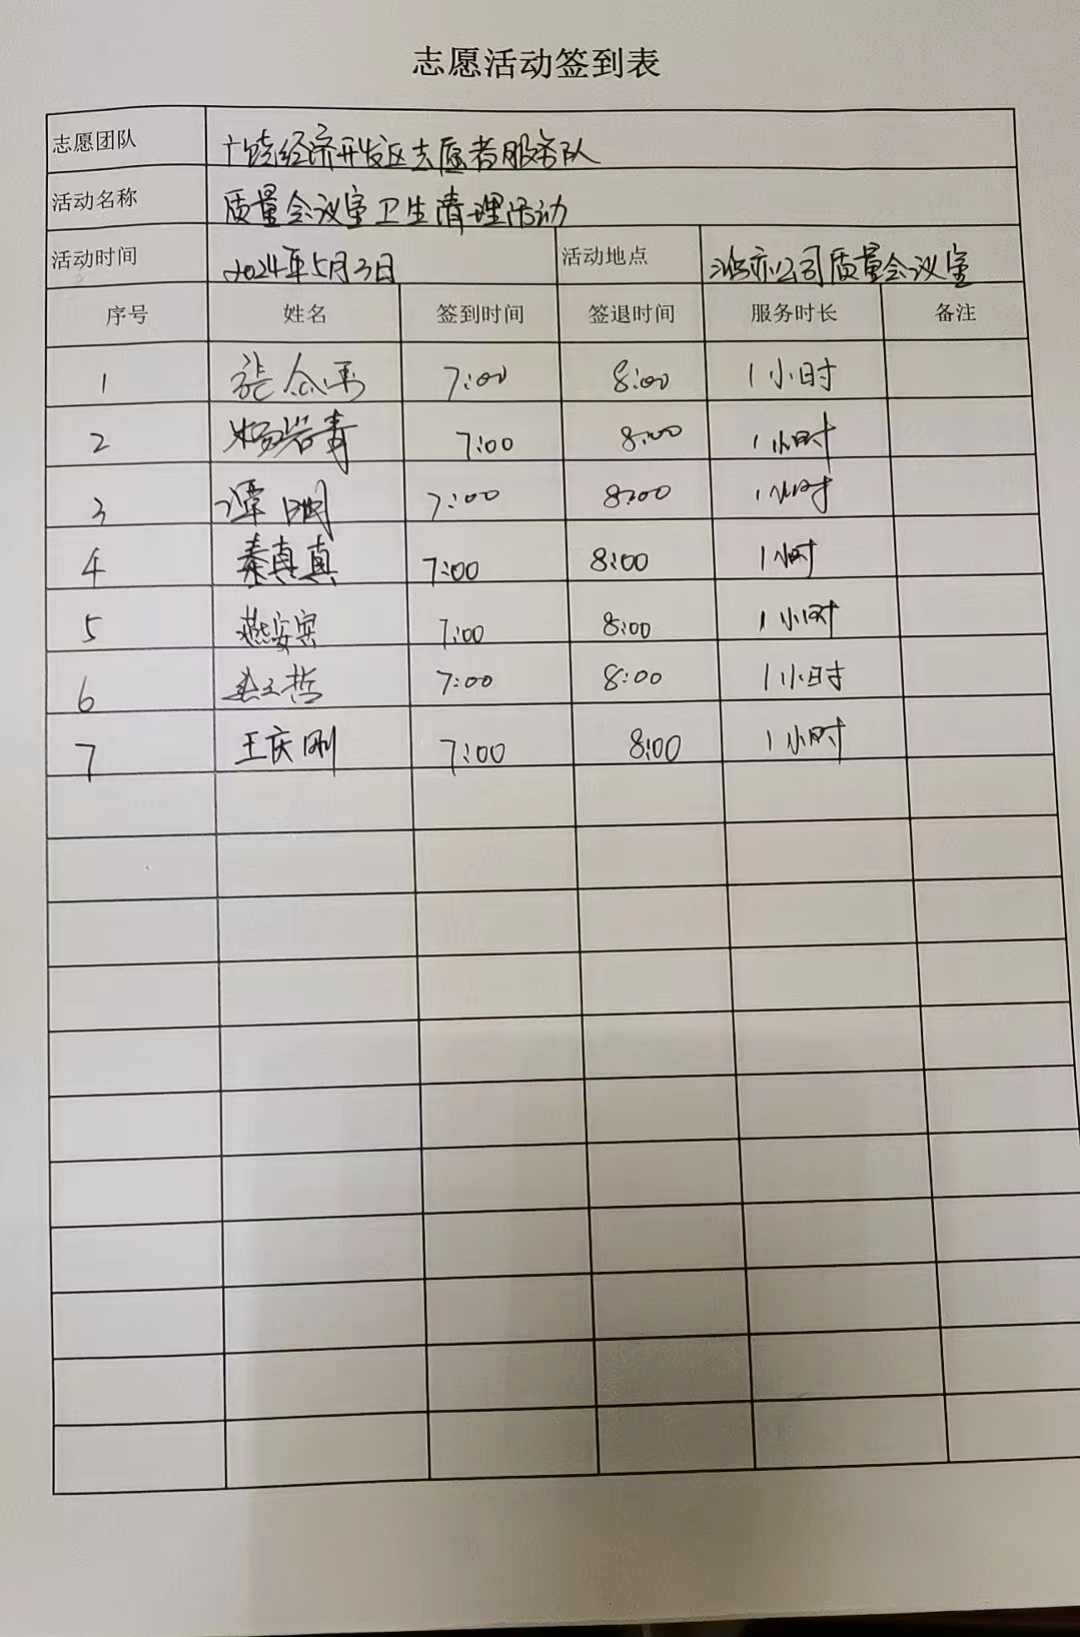 志愿活动签到表
志愿团队 广饶经济开发区志愿者服务队
活动名称 质量会议室卫生清理活动
活动时间 2024年5月3日 活动地点 公司质量会议室
序号 姓名 签到时间 签退时间 服务时长 备注
1 7:00 8:00 1小时
2 杨岩青 7:00 8:00 1小时
3 谭明 7:00 8:00 1小时
4 秦真真 7:00 8:00 1小时
5 燕安宾 7:00 8:00 1小时
6 7:00 8:00 1小时
7 王庆刚 7:00 8:00 1小时